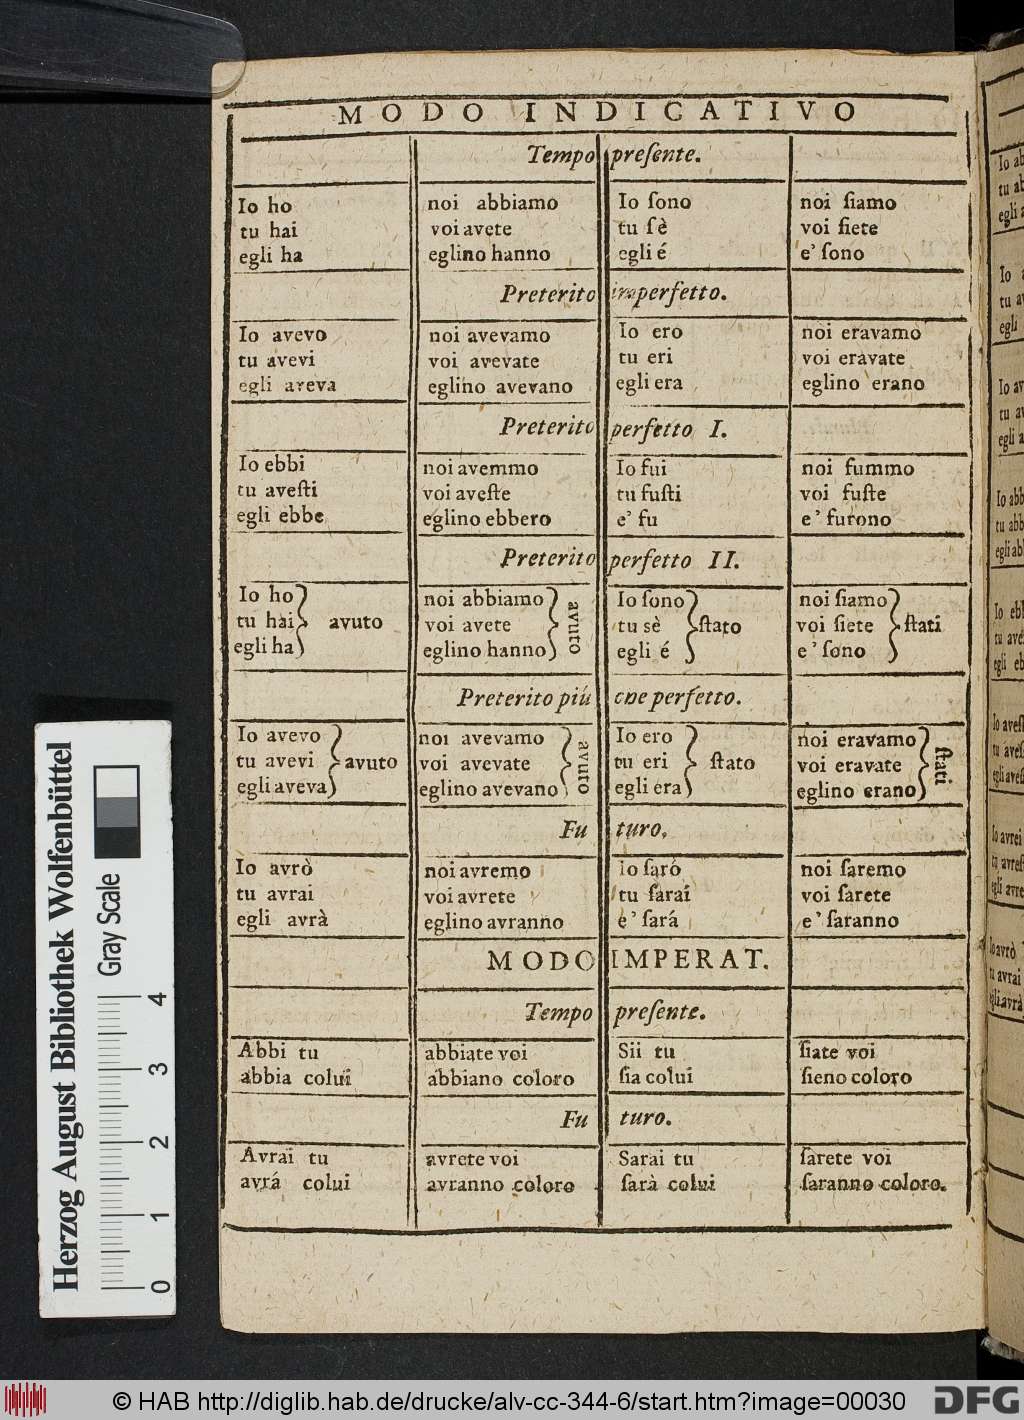 MODO INDICATIVO
Tempo preſente.
Io ho noi abbiamo Io ſono noi ſiamo
tu hai voi avete tu ſè voi ſiete
egli ha eglino hanno egli é e' ſono
Preterito imperfetto.
Io avevo noi avevamo Io ero noi eravamo
tu avevi voi avevate tu eri voi eravate
egli aveva eglino avevano egli era eglino erano
Preterito perfetto I.
Io ebbi noi avemmo Io fui noi fummo
tu aveſti voi aveſte tu fuſti voi fuſte
egli ebbe eglino ebbero e' fu e' furono
Preterito perfetto II.
Io ho noi abbiamo Io ſono noi ſiamo
tu hai avuto voi avete avuto tu sè ſtato voi ſiete ſtati
egli ha eglino hanno egli é e' ſono
Preterito piú che perfetto.
Io avevo noi avevamo Io ero noi eravamo
tu avevi avuto voi avevate avuto tu eri ſtato voi eravate ſtati
egli aveva eglino avevano egli era eglino erano
Futuro.
Io avrò noi avremo Io ſaró noi ſaremo
tu avrai voi avrete tu ſarai voi ſarete
egli avrà eglino avranno e' ſará e' ſaranno
MODO IMPERAT.
Tempo preſente.
Abbi tu abbiate voi Sii tu ſiate voi
abbia colui abbiano coloro ſia colui ſieno coloro
Futuro.
Avrai tu avrete voi Sarai tu ſarete voi
avrá colui avranno coloro ſarà colui ſaranno coloro.
Herzog August Bibliothek Wolfenbüttel
Gray Scale
0 1 2 3 4
© HAB http://diglib.hab.de/drucke/alv-cc-344-6/start.htm?image=00030
DFG